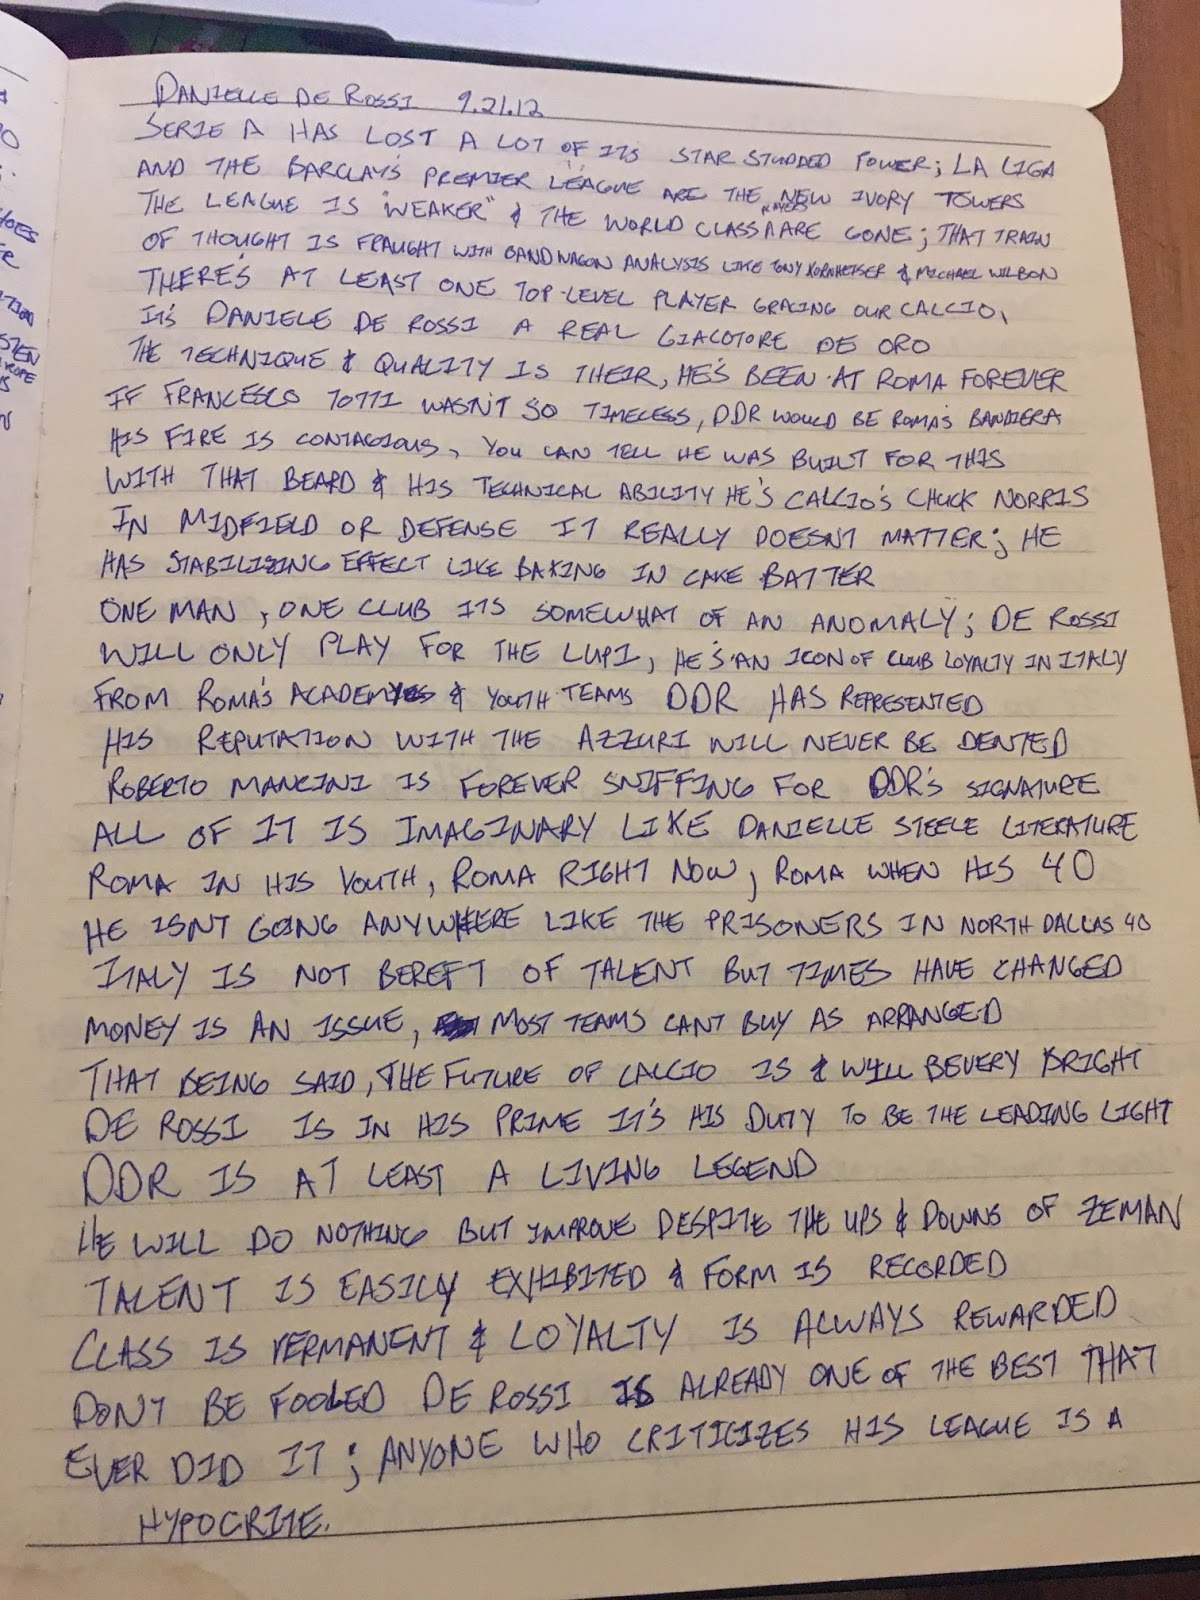 DANIELLE DE ROSSI 9.21.12
SERIE A HAS LOST A LOT OF ITS STAR STUDDED POWER; LA LIGA
AND THE BARCLAY'S PREMIER LEAGUE ARE THE NEW IVORY TOWERS
THE LEAGUE IS "WEAKER" & THE WORLD CLASS PLAYERS ARE GONE; THAT TRAIN
OF THOUGHT IS FRAUGHT WITH BANDWAGON ANALYSIS LIKE TONY KORNHEISER & MICHAEL WILBON
THERE'S AT LEAST ONE TOP-LEVEL PLAYER GRACING OUR CALCIO,
IT'S DANIELE DE ROSSI A REAL GIACOTORE DE ORO
THE TECHNIQUE & QUALITY IS THEIR, HE'S BEEN AT ROMA FOREVER
IF FRANCESCO TOTTI WASN'T SO TIMELESS, DDR WOULD BE ROMA'S BANDIERA
HIS FIRE IS CONTAGIOUS, YOU CAN TELL HE WAS BUILT FOR THIS
WITH THAT BEARD & HIS TECHNICAL ABILITY HE'S CALCIO'S CHUCK NORRIS
IN MIDFIELD OR DEFENSE IT REALLY DOESN'T MATTER; HE
HAS STABILIZING EFFECT LIKE BAKING IN CAKE BATTER
ONE MAN, ONE CLUB ITS SOMEWHAT OF AN ANOMALY; DE ROSSI
WILL ONLY PLAY FOR THE LUPI, HE'S AN ICON OF CLUB LOYALTY IN ITALY
FROM ROMA'S ACADEMYES & YOUTH TEAMS DDR HAS REPRESENTED
HIS REPUTATION WITH THE AZZURI WILL NEVER BE DENTED
ROBERTO MANCINI IS FOREVER SNIFFING FOR DDR'S SIGNATURE
ALL OF IT IS IMAGINARY LIKE DANIELLE STEELE LITERATURE
ROMA IN HIS YOUTH, ROMA RIGHT NOW, ROMA WHEN HIS 40
HE ISNT GOING ANYWHERE LIKE THE PRISONERS IN NORTH DALLAS 40
ITALY IS NOT BEREFT OF TALENT BUT TIMES HAVE CHANGED
MONEY IS AN ISSUE, MOST TEAMS CANT BUY AS ARRANGED
THAT BEING SAID, THE FUTURE OF CALCIO IS & WILL BE VERY BRIGHT
DE ROSSI IS IN HIS PRIME IT'S HIS DUTY TO BE THE LEADING LIGHT
DDR IS AT LEAST A LIVING LEGEND
HE WILL DO NOTHING BUT IMPROVE DESPITE THE UPS & DOWNS OF ZEMAN
TALENT IS EASILY EXHIBITED & FORM IS RECORDED
CLASS IS PERMANENT & LOYALTY IS ALWAYS REWARDED
DON'T BE FOOLED DE ROSSI IS ALREADY ONE OF THE BEST THAT
EVER DID IT; ANYONE WHO CRITICIZES HIS LEAGUE IS A
HYPOCRITE.